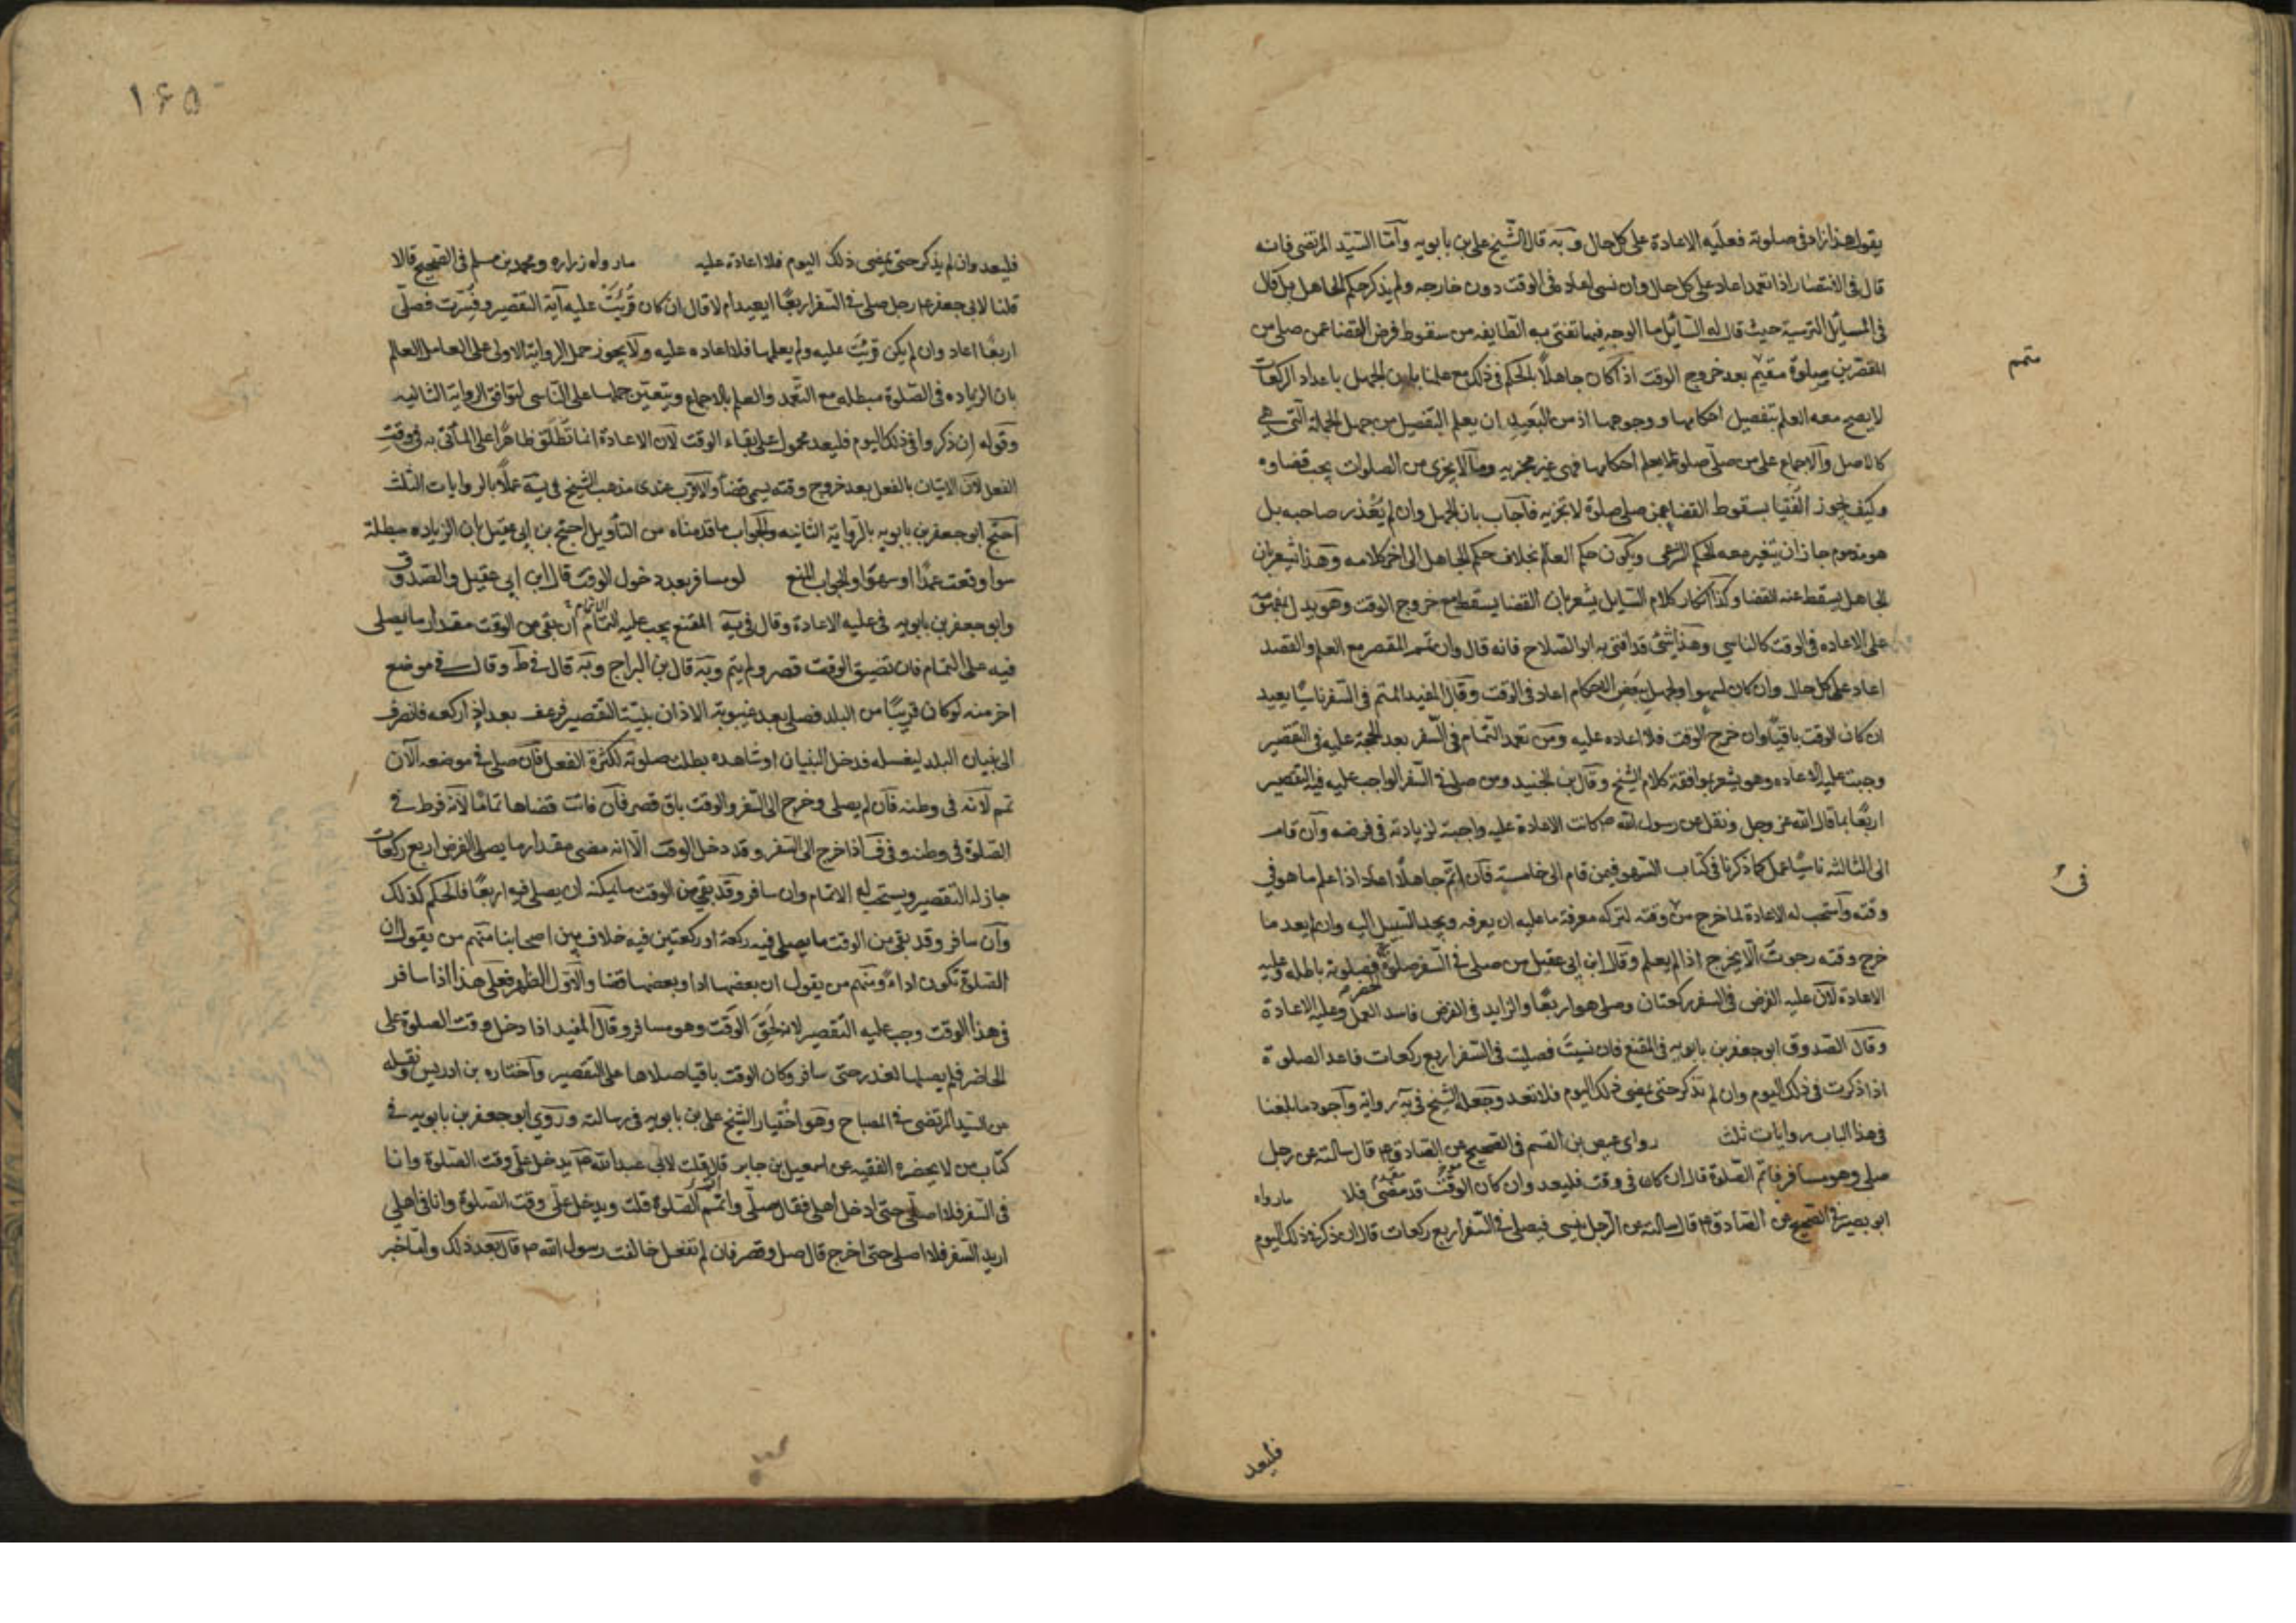 يقول هذا زاد في صلوته فعليه الاعادة على كل حال وبه قال الشيخ علي بن بابويه وامّا السيّد المرتضى فانه
قال في الانتصار اذا تعمد اعاد على كل حال وان نسى اعاد في الوقت دون خارجه ولم يذكر حكم الجاهل بل قال
في المسائل الرسية حيث قال له السائل ما الوجه فيما تفتى به الطايفه من سقوط فرض القضا عمن صلى من
المقصرين صلوة متمم بعد خروج الوقت اذا كان جاهلاً بالحكم في ذلك مع علمنا بان الجهل باعداد الركعات
لا يصح معه العلم بتفصيل احكامها ووجوهها اذ من البعيد ان يعلم التفصيل من جهل الجملة التي هي
كالاصل والاجماع على من صلّى صلوة لا يعلم احكامها فهى غير مجزيه وما لا يجزى من الصلوات يجب قضاوه
وكيف يجوز الفتيا بسقوط القضا عمن صلى صلوة لا تجزيه فاجاب بان الجهل وان لم يُعذر صاحبه بل
هو مذموم جاز ان يتغير معه الحكم الشرعى ويكون حكم العالم بخلاف حكم الجاهل الى اخر كلامه وهذا يشعر بان
الجاهل يسقط عنه القضا وكذا انكار كلام السايل يشعر بان القضا يسقط مع خروج الوقت وهو يدل بمفهومه
على الاعاده في الوقت كالناسي وهذا شئ قد افتى به ابو الصلاح فانه قال وان تمم المقصر مع العلم والقصد
اعاد على كل حال وان كان لسهو او لجهل ببعض الاحكام اعاد في الوقت وقال المفيد المتم في السفر ناسيا يعيد
ان كان الوقت باقيا وان خرج الوقت فلا اعاده عليه ومن تعمد التمام في السفر بعد الحجة عليه في التقصير
وجبت عليه الاعاده وهو يشعر بموافقة كلام الشيخ وقال بن الجنيد ومن صلى في السفر الواجب عليه فيه التقصير
اربعًا بما قال الله عز وجل ونقل عن رسول الله ص كانت الاعادة عليه واجبة لزيادته في فرضه وان قام
الى الثالثه ناسيًا عمل كما ذكرنا في كتاب السهو فيمن قام الى خامسة فان اتم جاهلاً اعاد اذا علم ما هو في
وقته واستحب له الاعادة لما خرج من وقته لتركه معرفة ما عليه ان يعرفه ويجد السبيل اليه وان لم يعد ما
خرج وقته رجوت الا يحرج اذا لم يعلم وقال ابن ابي عقيل من صلى في السفر صلوة الحضر فصلوته باطله وعليه
الاعادة لان عليه الفرض في السفر ركعتان وصلى هو اربعًا والزايد في الفرض فاسد العمل وعليه الاعادة
وقال الصدوق ابو جعفر بن بابويه في المقنع فان نسيت فصليت في السفر اربع ركعات فاعد الصلوة
اذا ذكرت في ذلك اليوم وان لم تذكر حتى يمضى ذلك اليوم فلا تعد وجعله الشيخ في يه رواية واجود ما بلغنا
في هذا الباب روايات ثلث رواى عيص بن القسم في الصحيح عن الصادق ع قال سالته عن رجل
صلى وهو مسافر فاتم الصلوة قال ان كان في وقت فليعد وان كان الوقت قد مضى فلا ما رواه
ابو بصير في الصحيح عن الصادق ع قال سالته عن الرجل ينسى فيصلى في السفر اربع ركعات قال ان ذكر في ذلك اليوم
متمم
في
فليعد
١۶۵
فليعد وان لم يذكر حتى يمضى ذلك اليوم فلا اعادة عليه ما رواه زراره ومحمد بن مسلم في الصحيح قالا
قلنا لابى جعفر ع رجل صلى في السفر اربعًا ايعيد ام لا قال ان كان قُرِئَت عليه آية التقصير وفُسّرت فصلّى
اربعًا اعاد وان لم يكن قرئت عليه ولم يعلمها فلا اعاده عليه ولا يجوز حمل الرواية الاولى على العامد العالم
بان الزياده في الصلوة مبطله مع التعمد والعلم بالاجماع ويتعين حملها على الناسى لتوافق الرواية الثانيه
وقوله ان ذكر في ذلك اليوم فليعد محمول على بقاء الوقت لان الاعادة انما تطلق ظاهرًا على المأتى به في وقت
الفعل لان الاتيان بالفعل بعد خروج وقته يسمى قضأ والاقرب عندى مذهب الشيخ في يه عملًا بالروايات الثلث
احتج ابو جعفر بن بابويه بالرواية الثانيه والجواب ما قدمناه من التأويل احتج بن ابي عقيل بان الزياده مبطلة
سوا وقعت عمدًا او سهوًا والجواب المنع لو سافر بعد دخول الوقت قال ابن ابي عقيل والصدوق
وابو جعفر بن بابويه في عليه الاعادة وقال في يه المقنع يجب عليه التمام ان بقى من الوقت مقدار ما يصلى
فيه على التمام فان تضيق الوقت قصر ولم يتم وبه قال بن البراج وبه قال في ط وقال في موضع
اخر منه لو كان قريبًا من البلد فصلى بعد غيبوبة الاذان بنية التقصير فرعف بعد ركعه فانصرف
الى بنيان البلد ليغسله فدخل البنيان او شاهده بطلت صلوته لكثرة الفعل فان صلى في موضعه الآن
تمم لانه في وطنه فان لم يصلى وخرج الى السفر والوقت باق قصر فان فاتت قضاها تمامًا لانه فرط في
الصلوة في وطنه وفي ف اذا خرج الى السفر وقد دخل الوقت الا انه مضى مقدار ما يصلى الفرض اربع ركعات
جاز له التقصير ويستحب له الاتمام وان سافر وقد بقى من الوقت ما يمكنه ان يصلى فيه اربعًا فالحكم كذلك
وان سافر وقد بقى من الوقت ما يصلى فيه ركعة او ركعتين فيه خلاف بين اصحابنا منهم من يقول ان
الصلوة تكون اداءً ومنهم من يقول ان بعضها ادا وبعضها قضا والاول اظهر فعلى هذا اذا سافر
في هذا الوقت وجب عليه التقصير لانه لحق الوقت وهو مسافر وقال المفيد اذا دخل وقت الصلوة على
الحاضر فلم يصلها لعذر حتى سافر وكان الوقت باقيا صلاها على التقصير واختاره بن ادريس ونقله
من السيد المرتضى في المصباح وهو اختيار الشيخ على بن بابويه في رسالته وروى ابو جعفر بن بابويه في
كتاب من لا يحضره الفقيه عن اسمعيل بن جابر قال قلت لابى عبد الله ع يدخل علّى وقت الصلوة وانا
في السفر فلا اصلّى حتى ادخل اهلى فقال صلّى واتمم الصلوة قلت ويدخل علّى وقت الصلوة وانا في اهلى
اريد السفر فلا اصلى حتى اخرج قال صل وقصر فان لم تفعل خالفت رسول الله ص قال بعد ذلك واما خبر